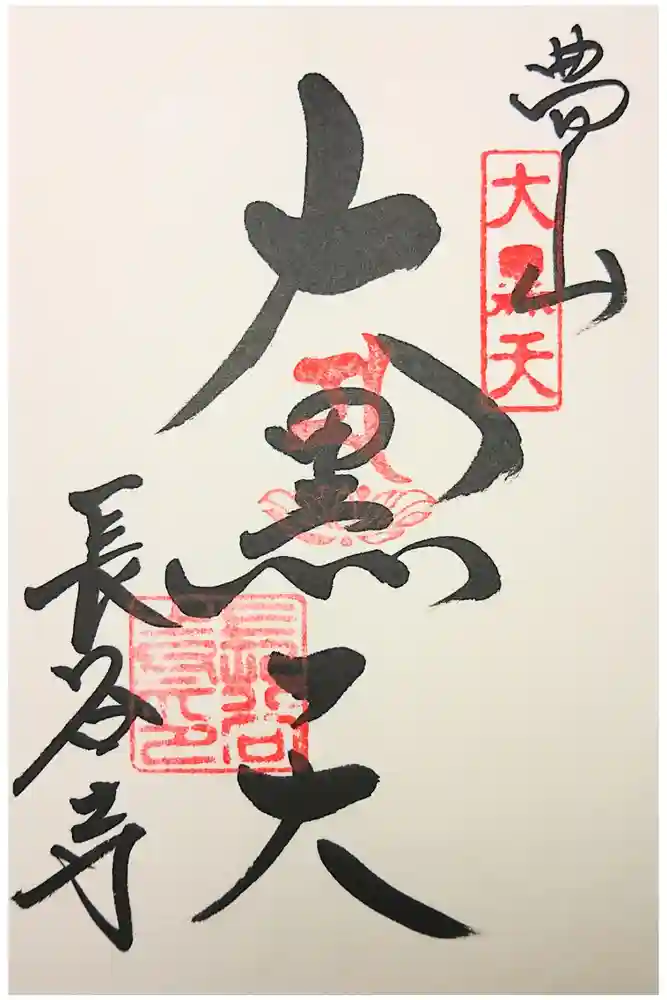 大黒天
大黒天
長谷寺